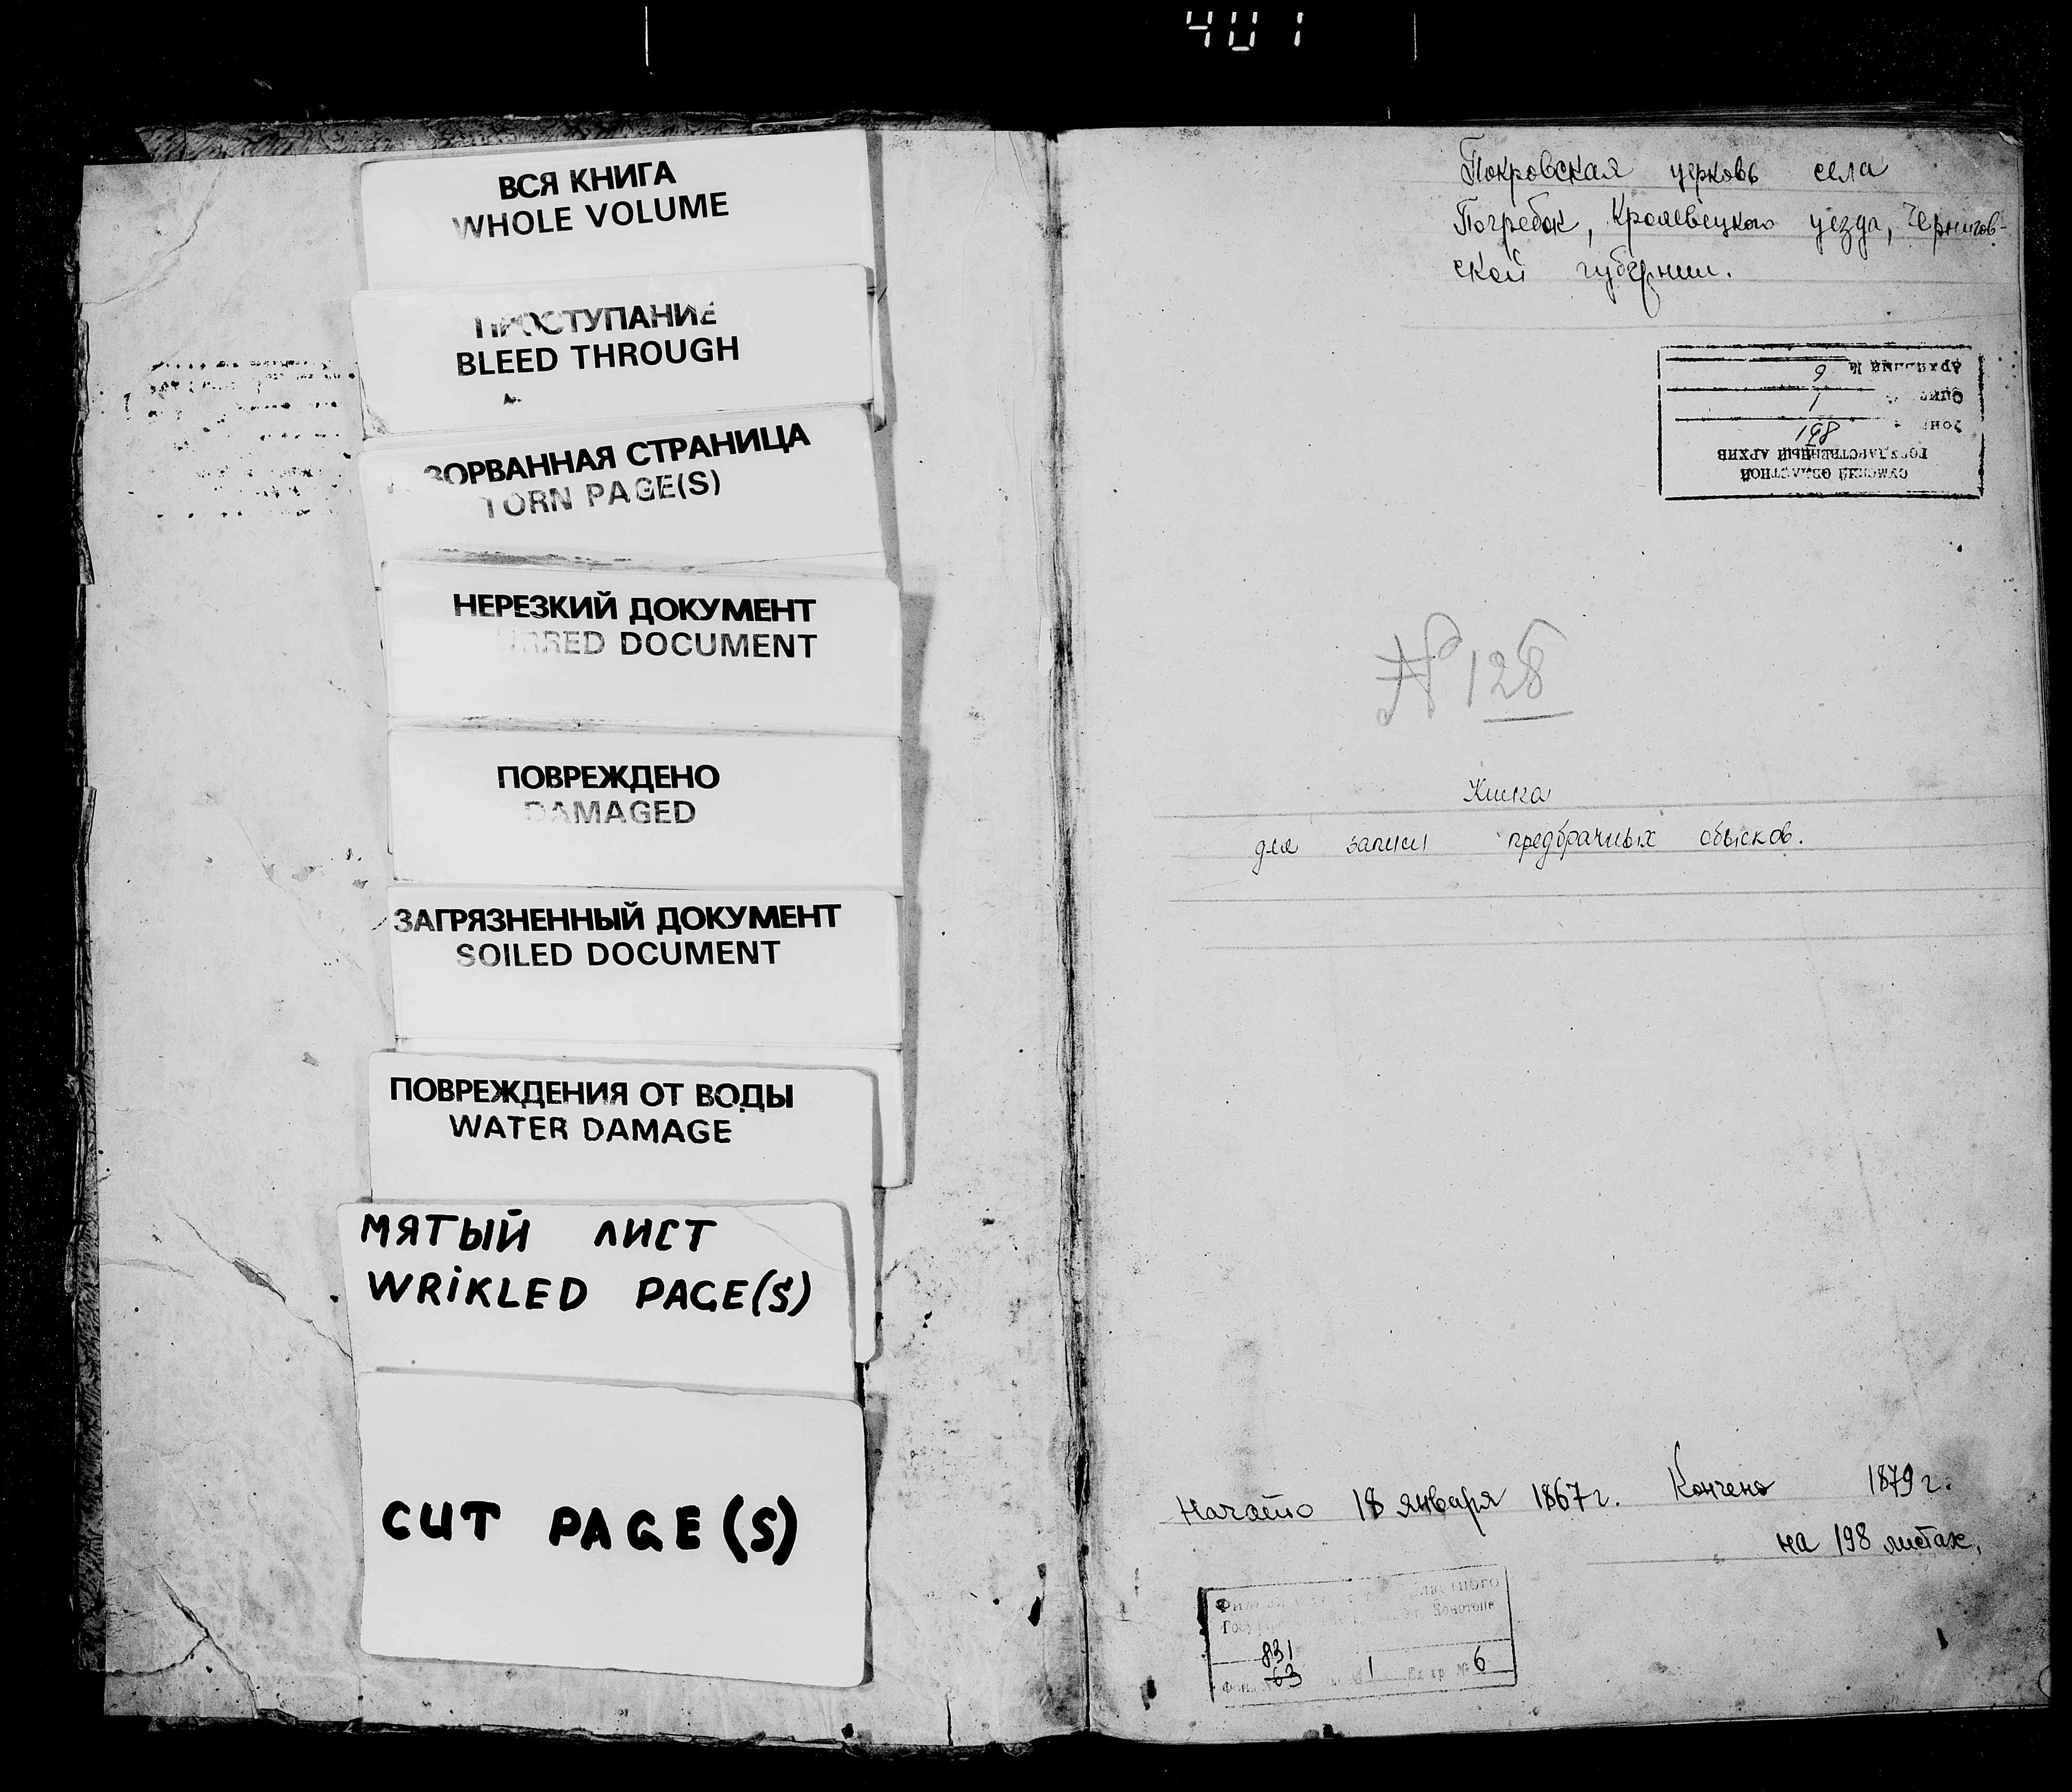 401
ВСЯ КНИГА
WHOLE VOLUME
ПРОСТУПАНИЕ
BLEED THROUGH
ЗОРВАННАЯ СТРАНИЦА
TORN PAGE(S)
НЕРЕЗКИЙ ДОКУМЕНТ
URRED DOCUMENT
ПОВРЕЖДЕНО
DAMAGED
ЗАГРЯЗНЕННЫЙ ДОКУМЕНТ
SOILED DOCUMENT
ПОВРЕЖДЕНИЯ ОТ ВОДЫ
WATER DAMAGE
МЯТЫЙ ЛИСТ
WRiKLED PAGE(S)
CUT PAGE(S)
Покровская церковь села
Погребок, Кролевецкого уезда, Чернигов-
ской губернии.
СУМСКИЙ ОБЛАСТНОЙ
ГОСУДАРСТВЕННЫЙ АРХИВ
198
1
Архивный № 6
№ 128
Книга
для записи предбрачных обысков.
Начато 18 января 1867 г. Кончено 1879 г.
на 198 листах,
Конотопе
831
63 1 Ед. хр. № 6